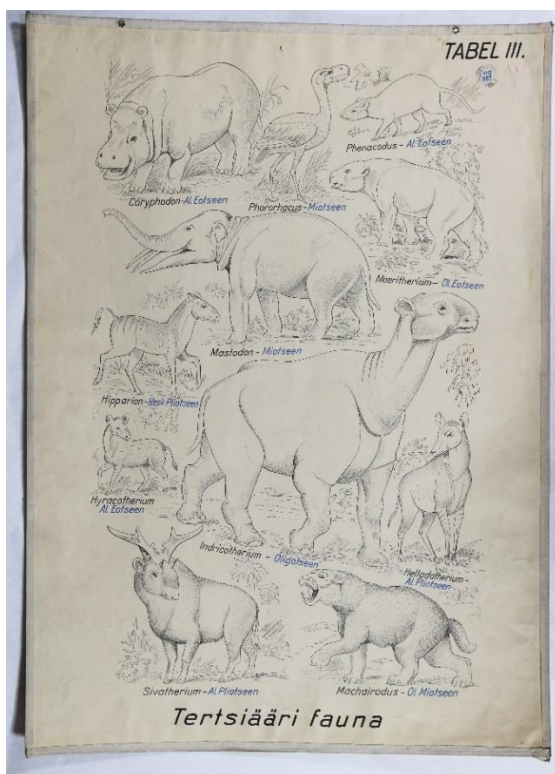 TABEL III.
Phenacodus - Al. Eotseen
Coryphodon - Al. Eotseen
Phororhacus - Miotseen
Moeritherium - Ol. Eotseen
Mastodon - Miotseen
Hipparion - Kesk Pliotseen
Hyracotherium
Al. Eotseen
Indricotherium - Oligotseen
Helladotherium -
Al. Pliotseen
Sivatherium - Al. Pliotseen
Machairodus - Ol. Miotseen
Tertsiääri fauna